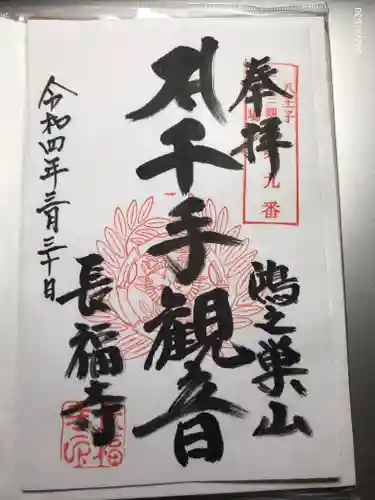 奉拝
八王子
三観
九番
鴻之巣山
千手観音
長福寺
令和四年三月三十日